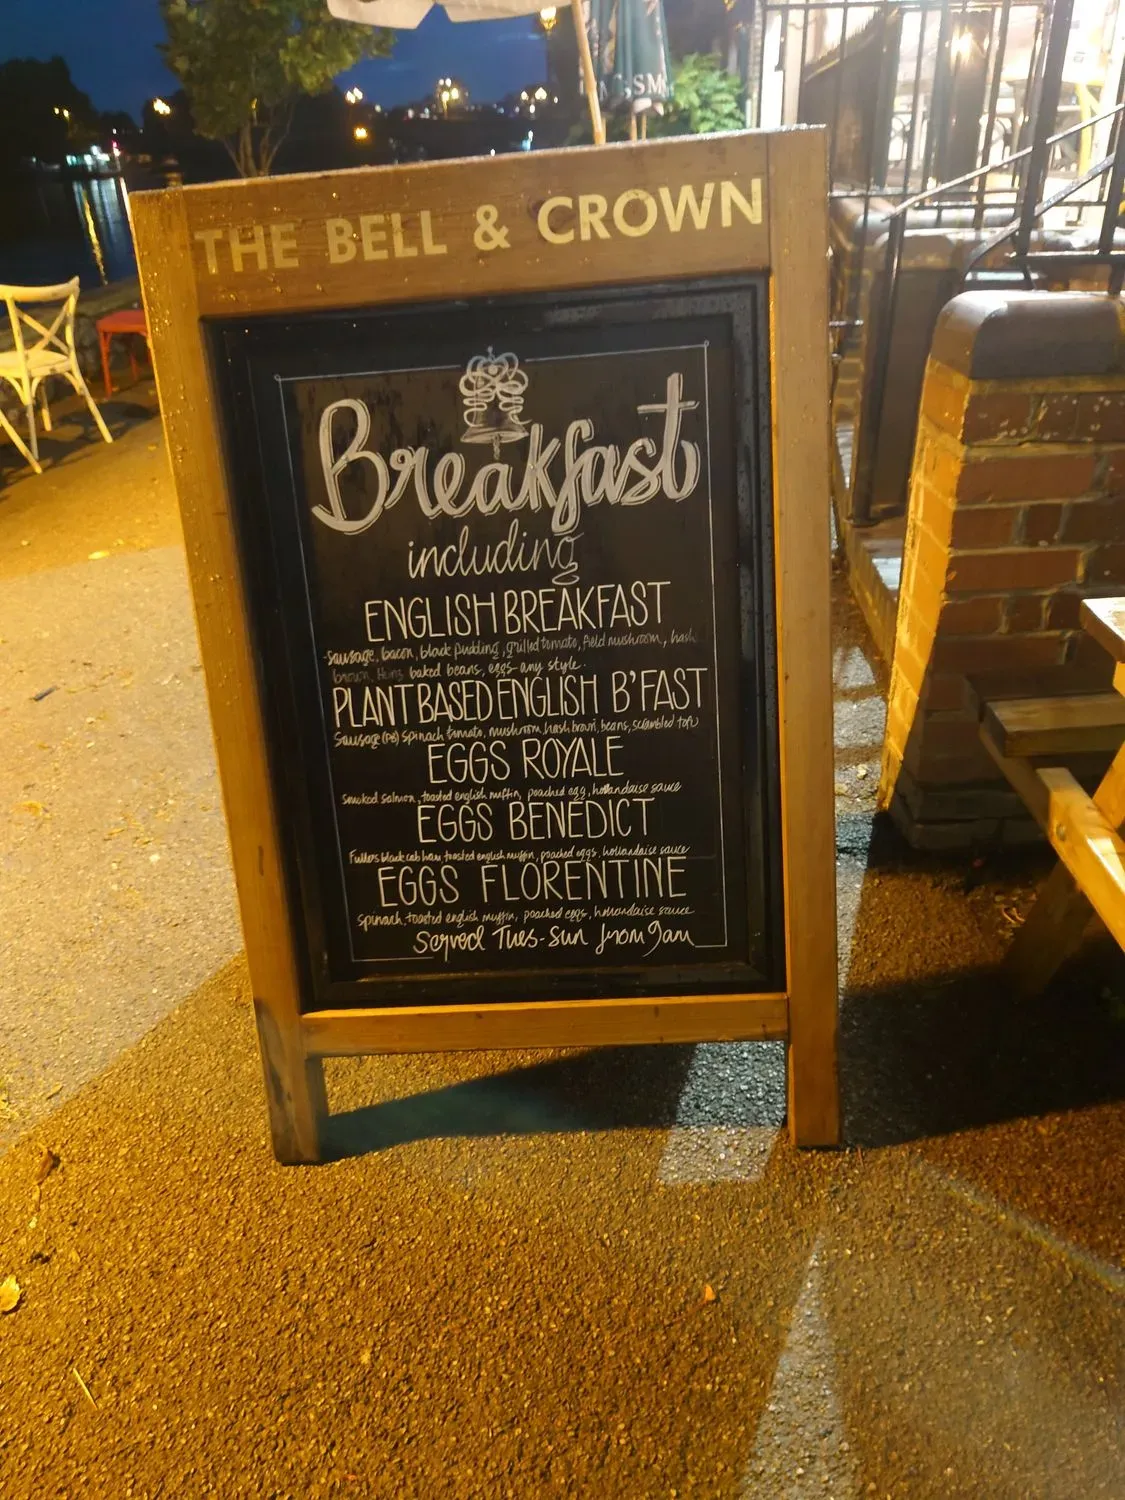 THE BELL & CROWN
Breakfast
including
ENGLISH BREAKFAST
-sausage, bacon, black pudding, grilled tomato, field mushroom, hash
brown, Heinz baked beans, eggs-any style.
PLANT BASED ENGLISH B'FAST
Sausage (PB) spinach tomato, mushroom, hash brown, beans, scrambled tofu
EGGS ROYALE
smoked salmon, toasted english muffin, poached egg, hollandaise sauce
EGGS BENEDICT
Fullers black cab ham toasted english muffin, poached eggs, hollandaise sauce
EGGS FLORENTINE
spinach, toasted english muffin, poached eggs, hollandaise sauce
Served Tues-Sun from 9am